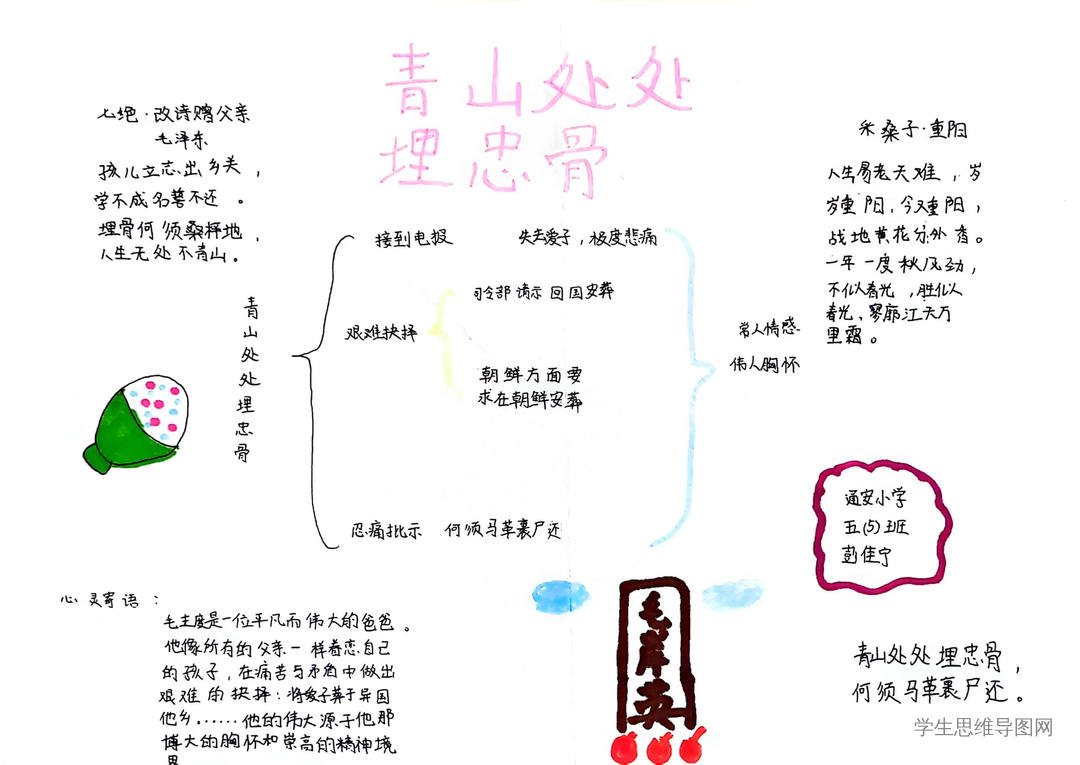 青山处处
埋忠骨
七绝·改诗赠父亲
毛泽东
孩儿立志出乡关，
学不成名誓不还。
埋骨何须桑梓地，
人生无处不青山。
采桑子·重阳
人生易老天难，岁
岁重阳，今又重阳，
战地黄花分外香。
一年一度秋风劲，
不似春光，胜似
春光，寥廓江天万
里霜。
青山处处埋忠骨
接到电报 失去爱子，极度悲痛
司令部请示回国安葬
艰难抉择
朝鲜方面要
求在朝鲜安葬
忍痛批示 何须马革裹尸还
常人情感
伟人胸怀
通安小学
五(5)班
彭佳宁
心灵寄语：
毛主席是一位平凡而伟大的爸爸。
他像所有的父亲一样眷恋自己
的孩子，在痛苦与矛盾中做出
艰难的抉择：将爱子葬于异国
他乡……他的伟大源于他那
博大的胸怀和崇高的精神境
界
毛岸英
青山处处埋忠骨，
何须马革裹尸还。
学生思维导图网